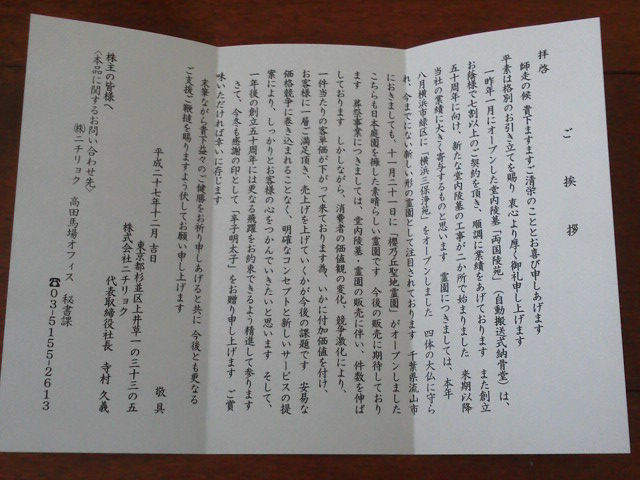 ご挨拶
拝啓
師走の候 貴下ますますご清栄のこととお喜び申しあげます
平素は格別のお引き立てを賜り 衷心より厚く御礼申し上げます
一昨年一月にオープンした堂内陵墓「両国陵苑」（自動搬送式納骨堂）は、
お陰様で七割以上のご契約を頂き、順調に業績をあげております また創立
五十周年に向け、新たな堂内陵墓の工事が二か所で始まりました 来期以降
当社の業績に大きく寄与するものと思います 霊園につきましては、本年
八月横浜市緑区に「横浜三保浄苑」をオープンしました 四体の大仏に守ら
れ、今までにない新しい形の霊園として注目されております 千葉県流山市
におきましても、十一月二十一日に「櫻乃丘聖地霊園」がオープンしました
こちらも日本庭園を擁した素晴らしい霊園です 今後の販売に期待しており
ます 葬祭事業につきましては、堂内陵墓・霊園の販売に伴い、件数を伸ば
しております しかしながら、消費者の価値観の変化、競争激化により、
一件当たりの客単価が下がって来ております為、いかに付加価値を付け、
お客様に一層ご満足頂き、売上を上げていくかが今後の課題です 安易な
価格競争に巻き込まれることなく、明確なコンセプトと新しいサービスの提
案により、しっかりとお客様の心をつかんでいきたいと思います そして、
一年後の創立五十周年には更なる飛躍をお約束できるよう精進して参ります
さて、今冬も感謝の印として「辛子明太子」をお贈り申し上げます ご賞
味いただければ幸いに存じます
末筆ながら貴下益々のご健勝をお祈り申しあげると共に 今後とも更なる
ご支援ご鞭撻を賜りますよう伏してお願い申し上げます
敬具
平成二十七年十二月吉日
東京都杉並区上井草一の三十三の五
株式会社ニチリョク
代表取締役社長 寺村久義
株主の皆様へ
〈本品に関するお問い合わせ先〉
㈱ニチリョク 高田馬場オフィス 秘書課
☎03-5155-2613